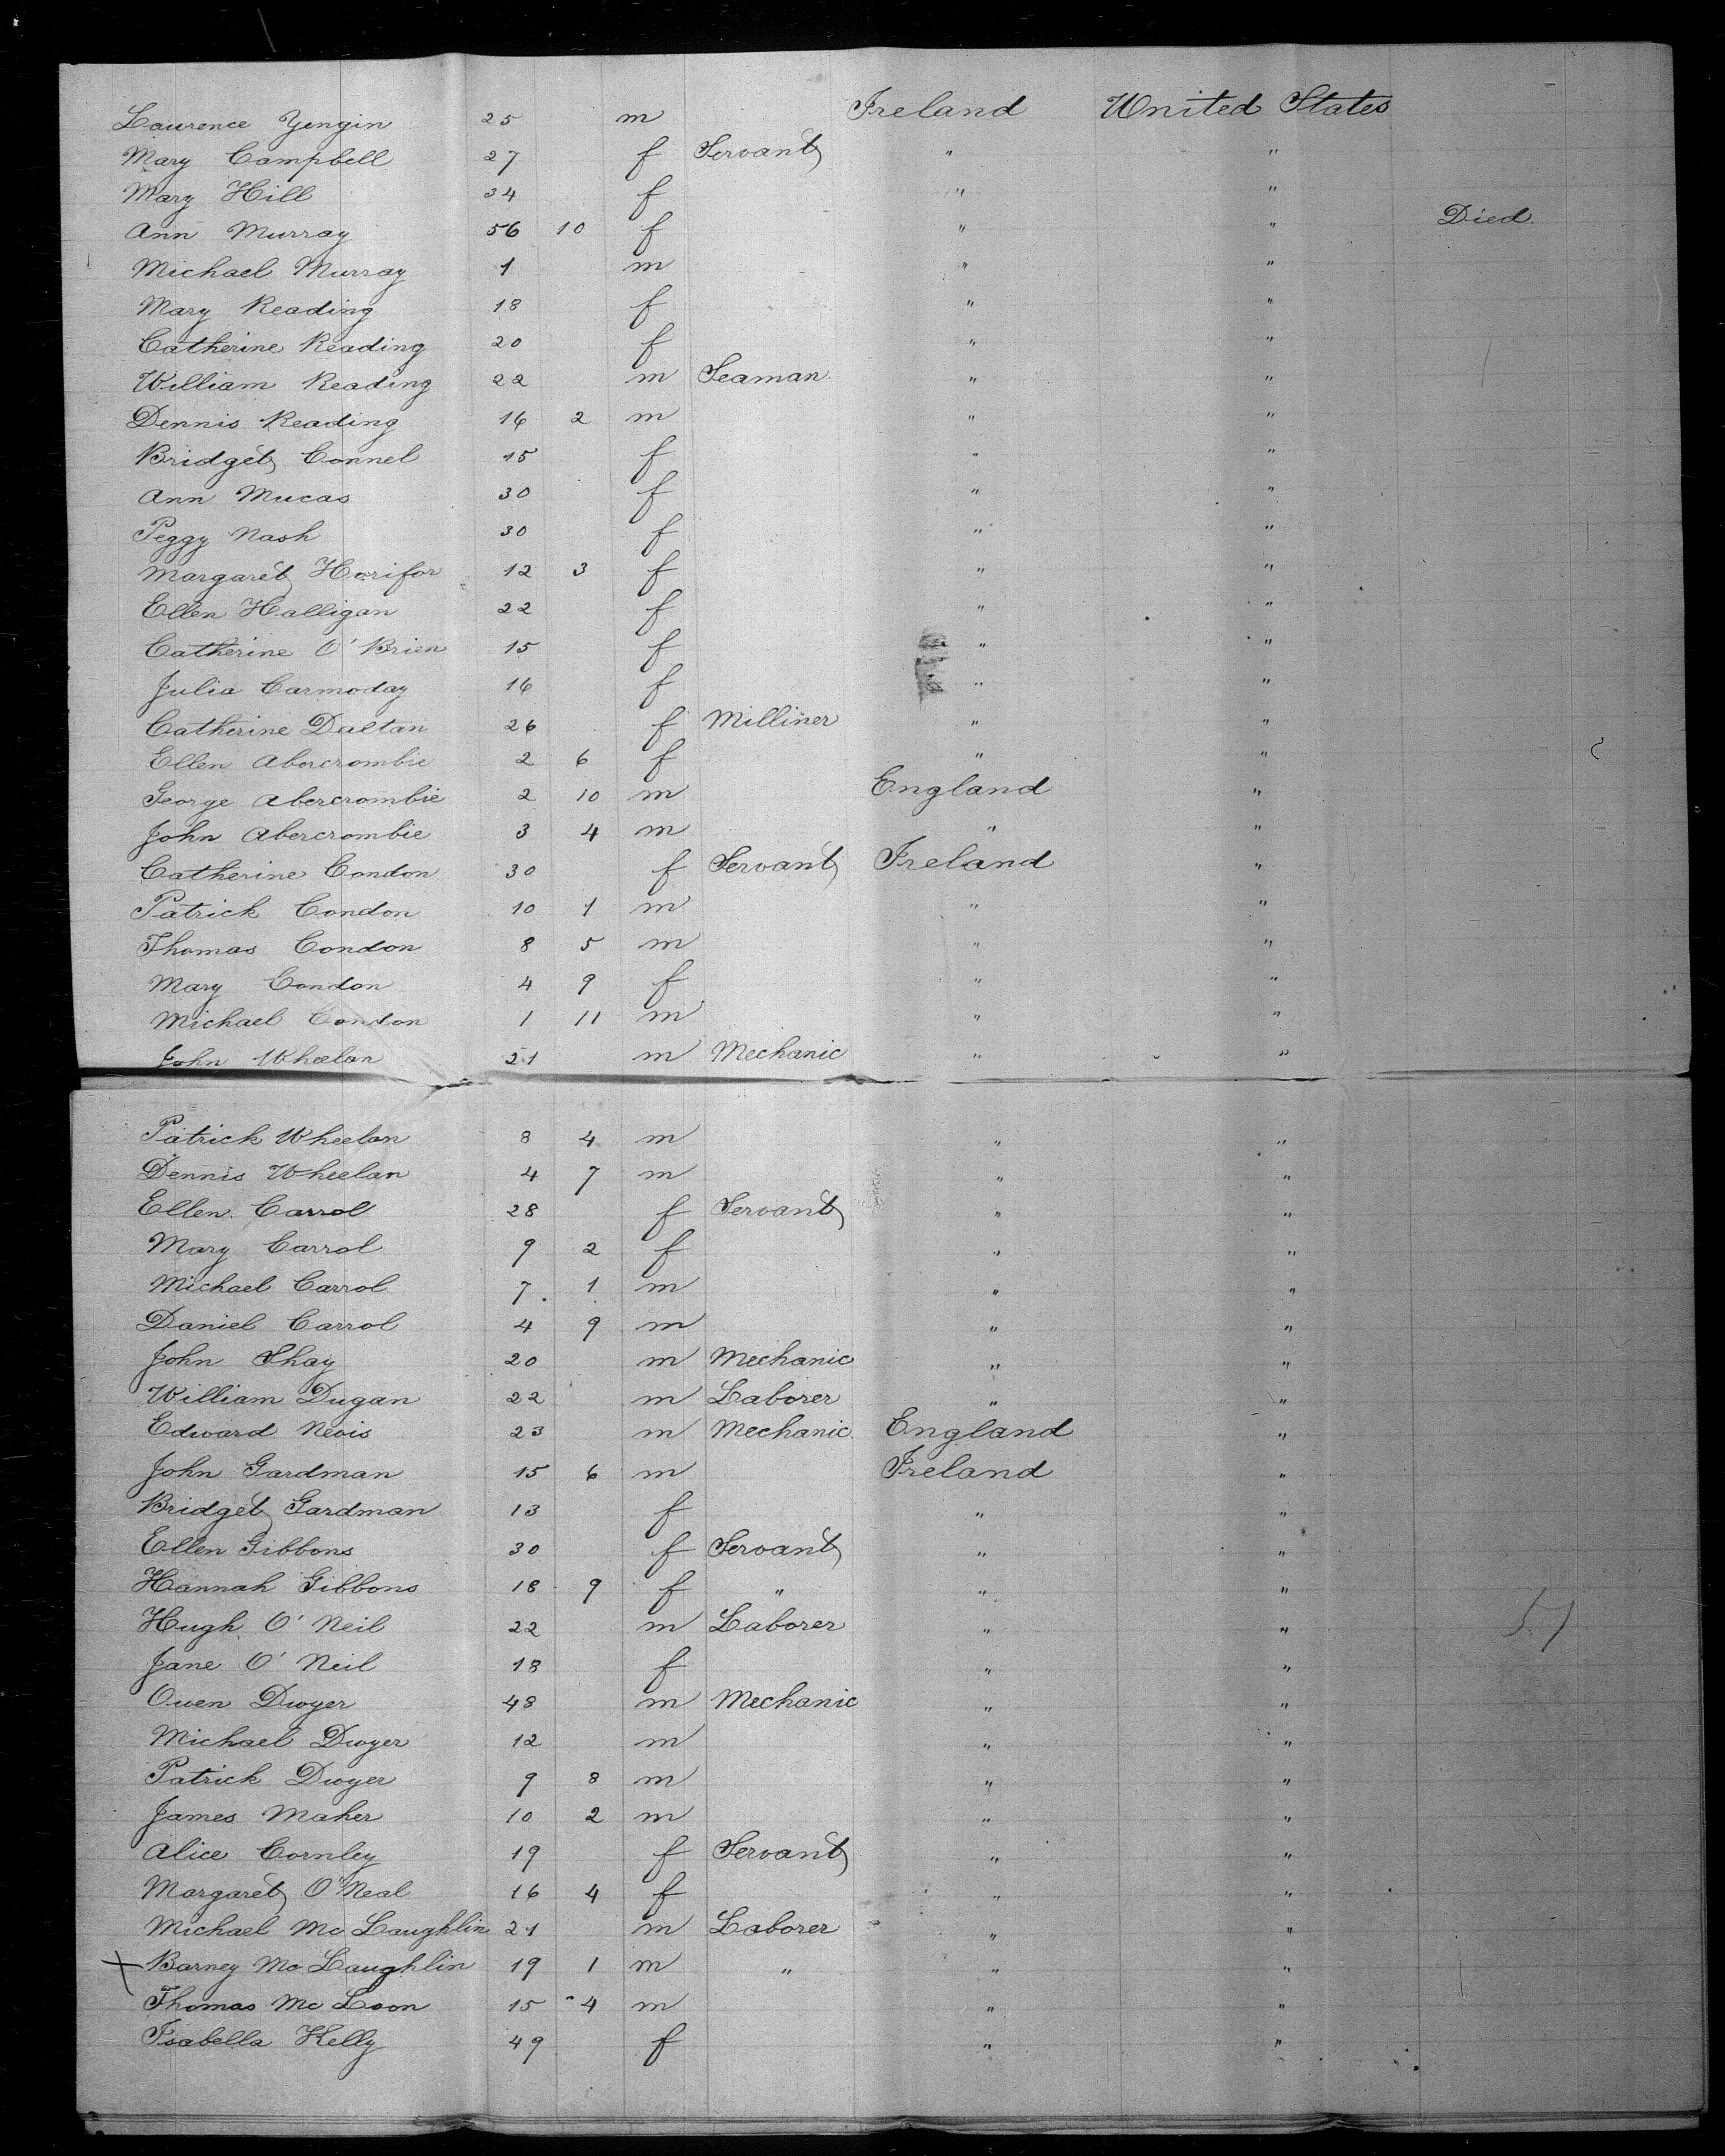 Laurence Yengin 25 m Ireland United States
Mary Campbell 27 f Servant " "
Mary Hill 34 f " "
Ann Murray 56 10 f " " Died
Michael Murray 1 m " "
Mary Reading 18 f " "
Catherine Reading 20 f " "
William Reading 22 m Seaman " "
Dennis Reading 16 2 m " "
Bridget Connel 15 f " "
Ann Mucas 30 f " "
Peggy Nash 30 f " "
Margaret Horifor 12 3 f " "
Ellen Halligan 22 f " "
Catherine O'Brien 15 f " "
Julia Carmoday 16 f " "
Catherine Daltan 26 f Milliner " "
Ellen Abercrombie 2 6 f " "
George Abercrombie 2 10 m England "
John Abercrombie 3 4 m " "
Catherine Condon 30 f Servant Ireland "
Patrick Condon 10 1 m " "
Thomas Condon 8 5 m " "
Mary Condon 4 9 f " "
Michael Condon 1 11 m " "
John Wheelan 21 m Mechanic " "
Patrick Wheelan 8 4 m " "
Dennis Wheelan 4 7 m " "
Ellen Carrol 28 f Servant " "
Mary Carrol 9 2 f " "
Michael Carrol 7 1 m " "
Daniel Carrol 4 9 m " "
John Shay 20 m Mechanic " "
William Dugan 22 m Laborer " "
Edward Nevis 23 m Mechanic England "
John Gardman 15 6 m Ireland "
Bridget Gardman 13 f " "
Ellen Gibbons 30 f Servant " "
Hannah Gibbons 18 9 f " " "
Hugh O'Neil 22 m Laborer " "
Jane O'Neil 18 f " "
Owen Dwyer 48 m Mechanic " "
Michael Dwyer 12 m " "
Patrick Dwyer 9 8 m " "
James Maher 10 2 m " "
Alice Cornley 19 f Servant " "
Margaret O'Neal 16 4 f " "
Michael McLaughlin 21 m Laborer " "
Barney McLaughlin 19 1 m " " "
Thomas McLoon 15 4 m " "
Isabella Kelly 49 f " "